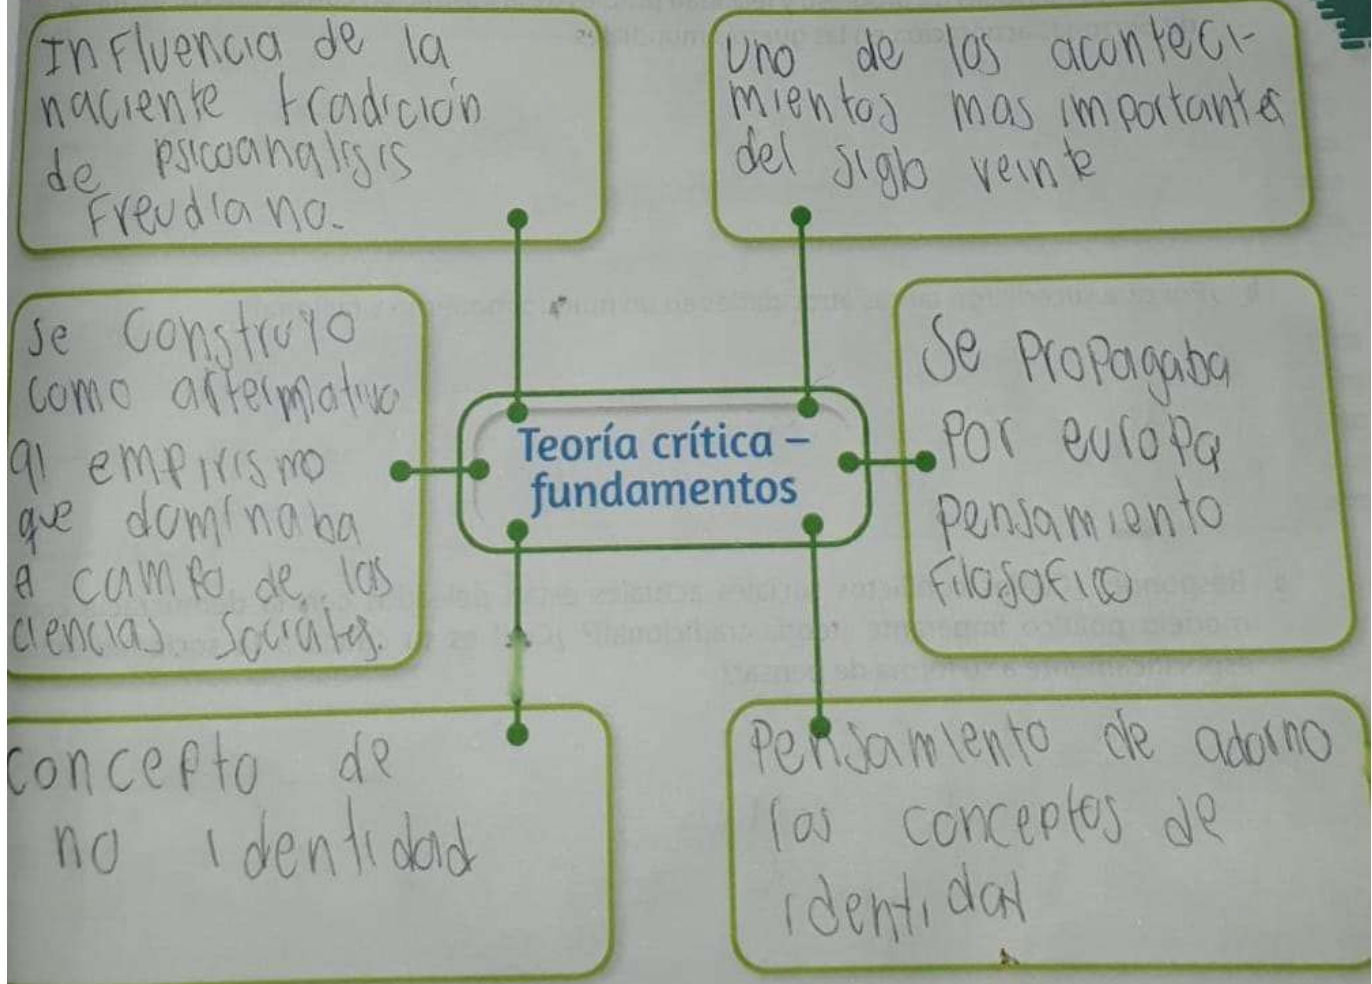 Influencia de la
naciente tradición
de psicoanalisis
Freudiano.
Uno de los aconteci-
mientos mas importantes
del siglo veinte
Se construyo
como artermativo
al empirismo
que dominaba
e campo de las
ciencias sociales.
Teoría crítica –
fundamentos
Se propagaba
por europa
pensamiento
Filosofico
concepto de
no identidad
Pensamiento de adorno
los conceptos de
identidad